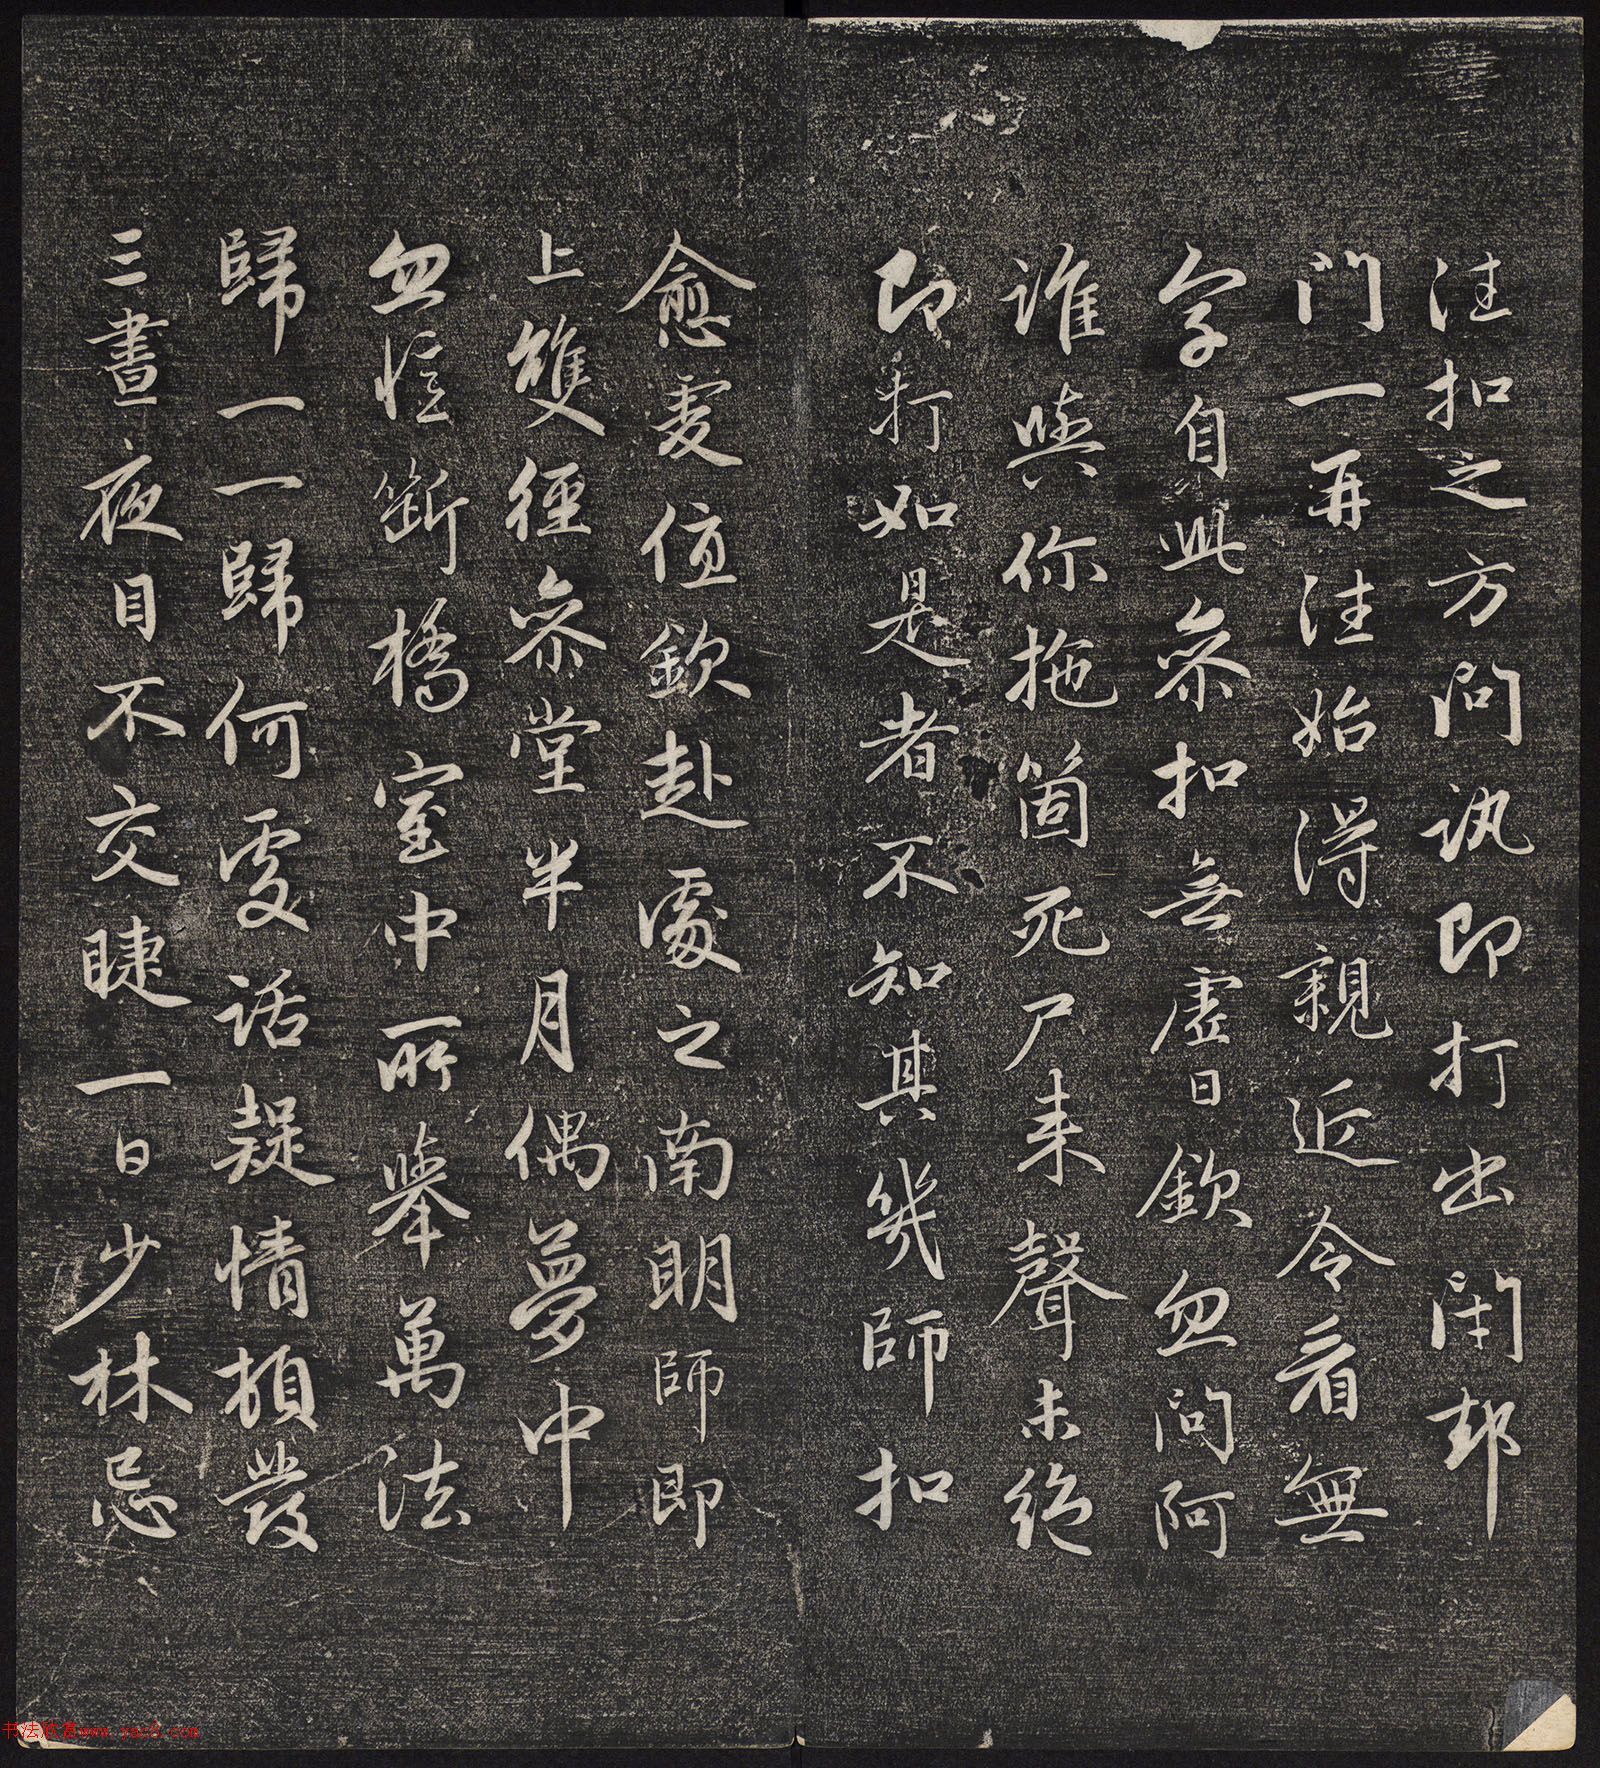 往扣之方問訊即打出閉却
門一再往始得親近令看無
字自此參扣無虛日欽忽問阿
誰與你拖箇死尸來聲未絕
即打如是者不知其幾師扣
愈虔值欽赴處之南明師即
上雙徑參堂半月偶夢中
忽憶斷橋室中所舉萬法
歸一一歸何處話疑情頓發
三晝夜目不交睫一日少林忌
书法欣赏www.yac8.com